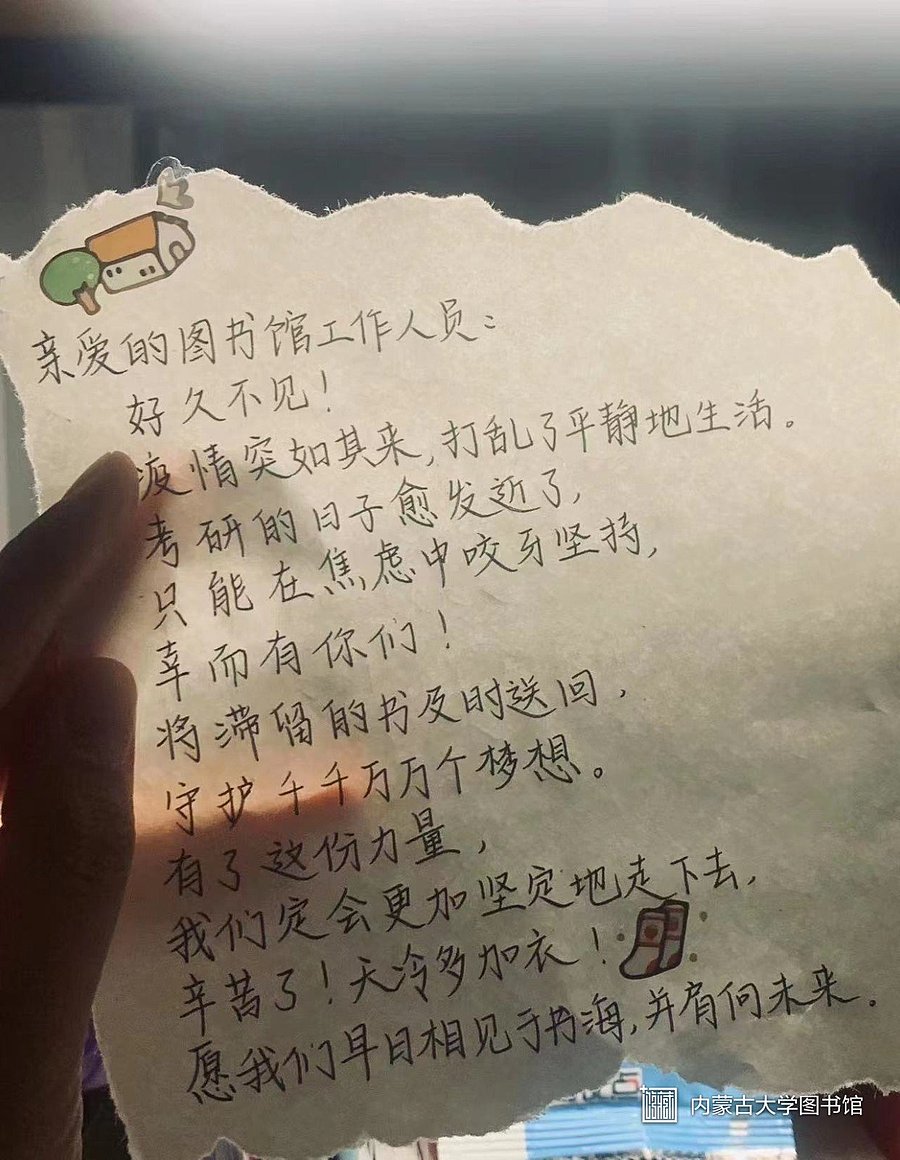 亲爱的图书馆工作人员：
好久不见！
疫情突如其来，打乱了平静地生活。
考研的日子愈发近了，
只能在焦虑中咬牙坚持，
幸而有你们！
将滞留的书及时送回，
守护千千万万个梦想。
有了这份力量，
我们定会更加坚定地走下去，
辛苦了！天冷多加衣！
愿我们早日相见于书海，并肩向未来。
内蒙古大学图书馆